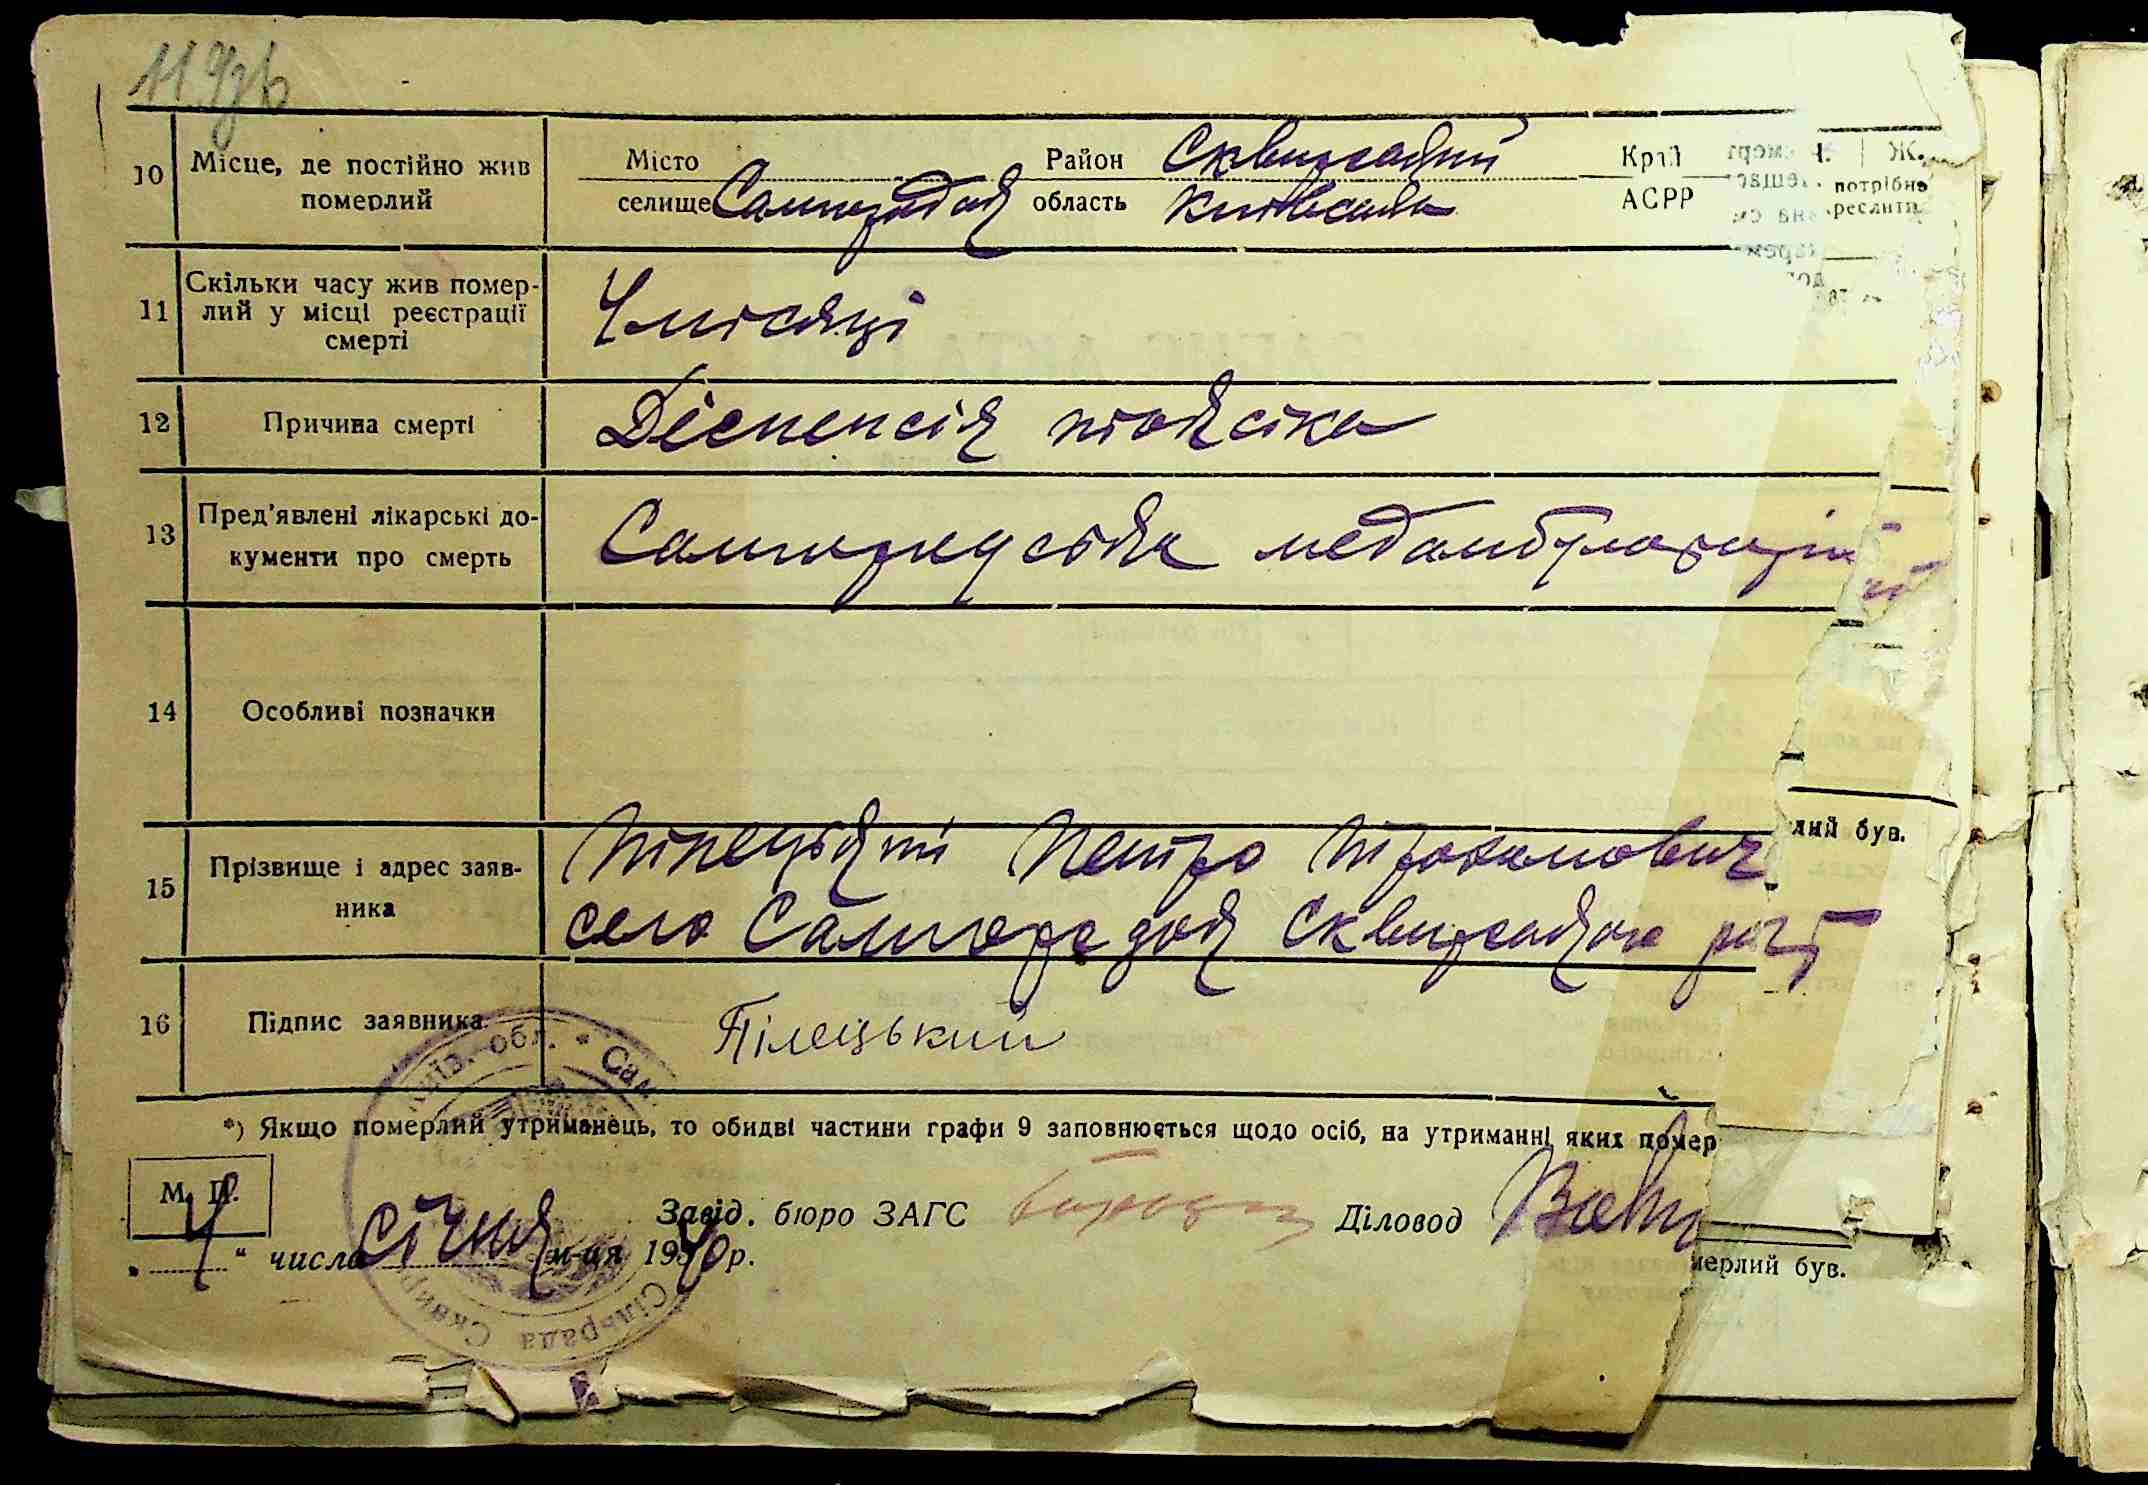 10 Місце, де постійно жив померлий Місто селище Самгородок Район Сквирський область Київська Край АСРР
Ж.
потрібне
11 Скільки часу жив помер-
лий у місці реєстрації
смерті
4 місяці
12 Причина смерті Діспепсія тоясіка
13 Пред'явлені лікарські до-
кументи про смерть
14 Особливі позначки
15 Прізвище і адрес заяв-
ника
Пілецький Петро
село Самгородок Сквирського
лий був.
16 Підпис заявника Пілецький
Київ. обл. * Сам
Сільрада Сквир
*) Якщо померлий утриманець, то обидві частини графи 9 заповнюється щодо осіб, на утриманні яких помер
М. П.
Завід. бюро ЗАГС Діловод
„ 4 " числа січня м-ця 1940 р.
мерлий був.